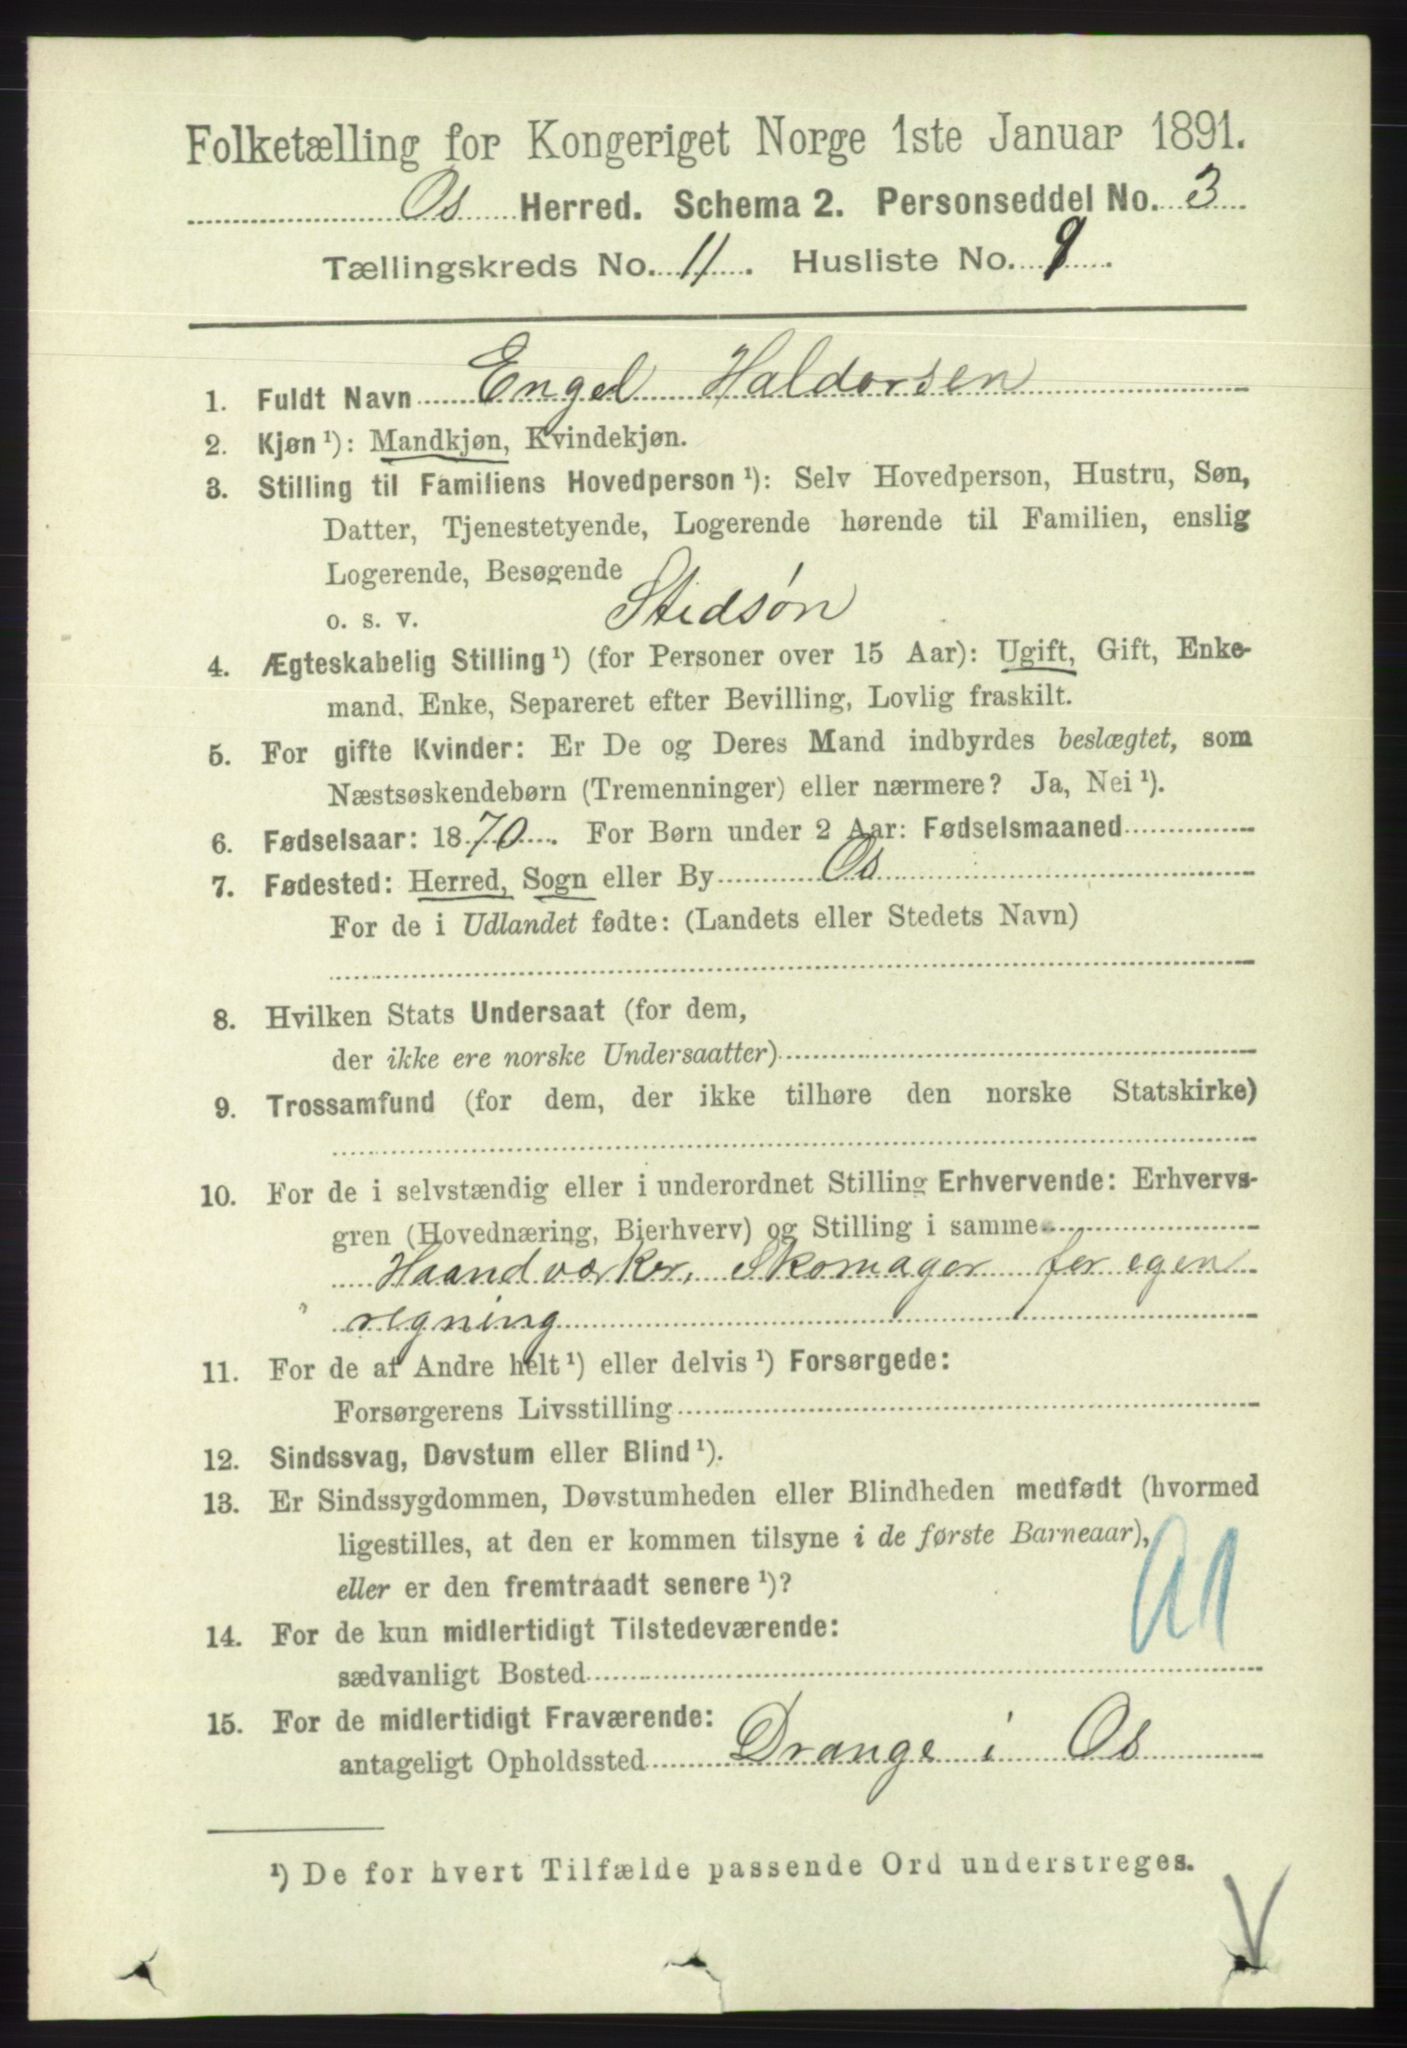 Folketælling for Kongeriget Norge 1ste Januar 1891.
Os Herred. Schema 2. Personseddel No. 3
Tællingskreds No. 11. Husliste No. 9.
1. Fuldt Navn Engel Haldorsen
2. Kjøn ¹): Mandkjøn, Kvindekjøn.
3. Stilling til Familiens Hovedperson ¹): Selv Hovedperson, Hustru, Søn,
Datter, Tjenestetyende, Logerende hørende til Familien, enslig
Logerende, Besøgende
o. s. v. Stedsøn
4. Ægteskabelig Stilling ¹) (for Personer over 15 Aar): Ugift, Gift, Enke-
mand, Enke, Separeret efter Bevilling, Lovlig fraskilt.
5. For gifte Kvinder: Er De og Deres Mand indbyrdes beslægtet, som
Næstsøskendebørn (Tremenninger) eller nærmere? Ja, Nei ¹).
6. Fødselsaar: 1870. For Børn under 2 Aar: Fødselsmaaned
7. Fødested: Herred, Sogn eller By Os
For de i Udlandet fødte: (Landets eller Stedets Navn)
8. Hvilken Stats Undersaat (for dem,
der ikke ere norske Undersaatter)
9. Trossamfund (for dem, der ikke tilhøre den norske Statskirke)
10. For de i selvstændig eller i underordnet Stilling Erhvervende: Erhvervs-
gren (Hovednæring, Bierhverv) og Stilling i samme
Haandværker, Skomager for egen
regning
11. For de af Andre helt ¹) eller delvis ¹) Forsørgede:
Forsørgerens Livsstilling
12. Sindssvag, Døvstum eller Blind ¹).
13. Er Sindssygdommen, Døvstumheden eller Blindheden medfødt (hvormed
ligestilles, at den er kommen tilsyne i de første Barneaar),
eller er den fremtraadt senere ¹)?
14. For de kun midlertidigt Tilstedeværende:
sædvanligt Bosted
15. For de midlertidigt Fraværende:
antageligt Opholdssted Drange i Os
¹) De for hvert Tilfælde passende Ord understreges.